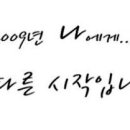 009년 나에게..
다른 시작입니